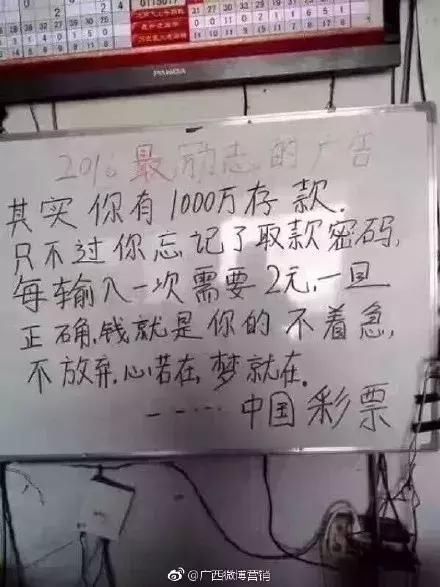 PANDA
2016最励志的广告
其实你有1000万存款.
只不过你忘记了取款密码,
每输入一次需要2元,一旦
正确,钱就是你的 不着急,
不放弃.心若在,梦就在.
-----中国彩票
@广西微博营销